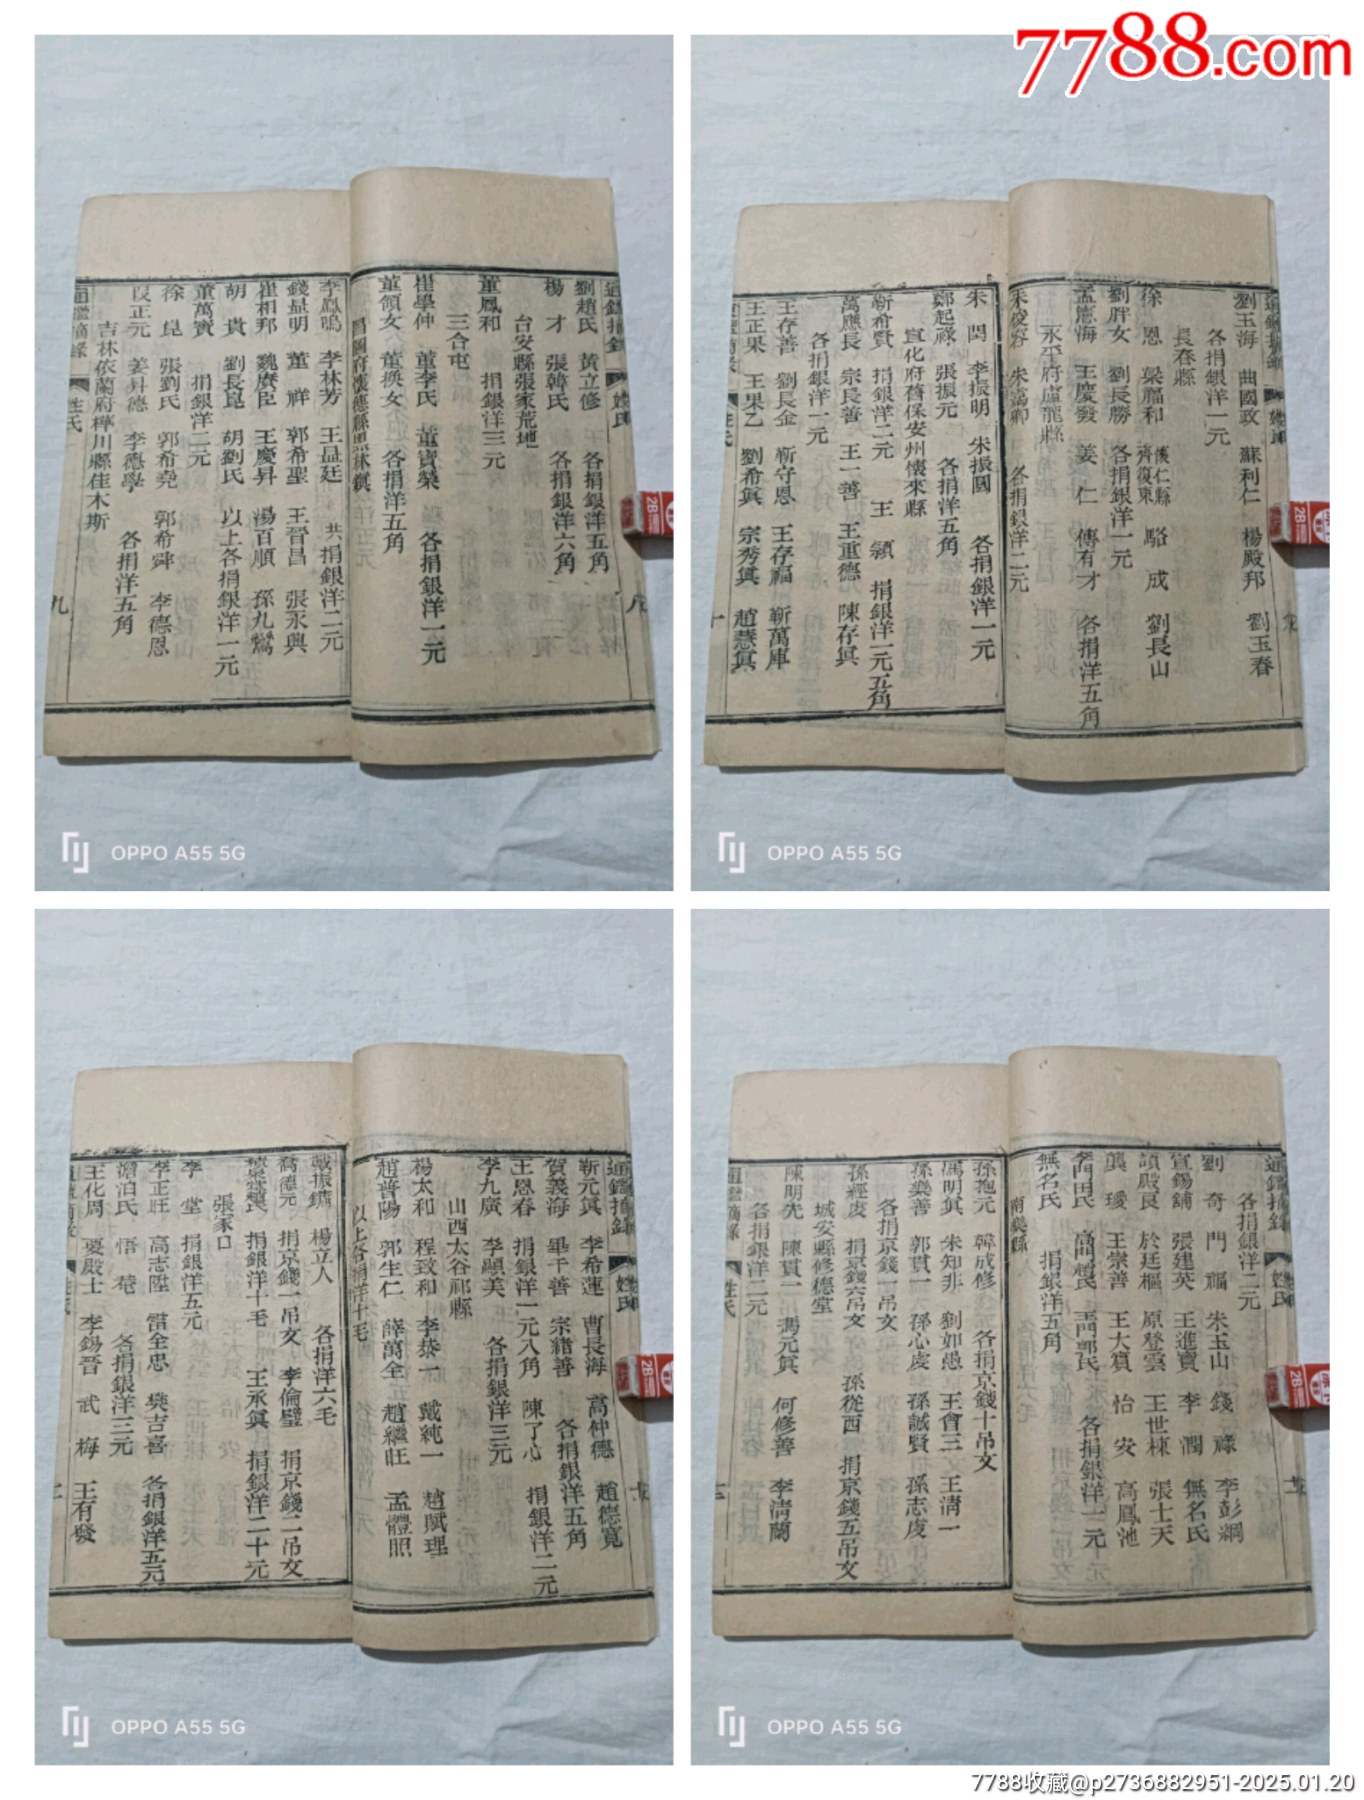 7788.com
劉趙氏 黃立修 各捐銀洋五角
楊才 張韓氏 各捐銀洋六角
台安縣張家荒地
董鳳和 捐銀洋三元
三合屯
崔學仲 董李氏 董寶榮 各捐銀洋一元
董領女 董換女 各捐洋五角
李鳳鳴 李林芳 王显廷 共捐銀洋二元
錢显明 董祥 郭希聖 王晉昌 張永興
崔相邦 魏賡臣 王慶昇 湯百順 孫九鶯
胡貴 劉長崑 胡劉氏 以上各捐銀洋一元
董萬寶 捐銀洋二元
徐崑 張劉氏 郭希堯 郭希舜 李德恩
段正元 姜昇德 李德學 各捐洋五角
吉林依蘭府樺川縣佳木斯
九
OPPO A55 5G
劉玉海 曲國政 蘇利仁 楊殿邦 劉玉春
各捐銀洋一元
長春縣
徐恩 梁福和 懷仁縣 齊復東 駱成 劉長山
劉胖女 劉長勝 各捐銀洋一元
孟憲海 王慶發 姜仁 傅有才 各捐洋五角
永平府盧龍縣
朱俊容 朱鴻卿 各捐銀洋二元
朱閏 李振明 朱振國 各捐銀洋一元
鄭起祿 張振元 各捐洋五角
宣化府舊保安州懷來縣
靳希賢 捐銀洋二元 王潁 捐銀洋一元五角
萬應長 宗長善 王一善 王重德 陳存眞
各捐銀洋一元
王存善 劉長金 靳守恩 王存福 靳萬庫
王正果 王果乙 劉希眞 宗秀眞 趙慧眞
十
OPPO A55 5G
通鑑摘錄 姓氏
靳元眞 李希蓮 曹長海 高仲德 趙德寬
賀義海 畢千善 宗緒善 各捐銀洋五角
王恩春 捐銀洋一元八角 陳了心 捐銀洋二元
李九廣 李顯美 各捐銀洋三元
山西太谷祁縣
楊太和 程致和 李恭一 戴純一 趙賦理
趙普陽 郭生仁 薛萬全 趙繼旺 孟體照
以上各捐洋十毛
戴振鑛 楊立人 各捐洋六毛
喬德元 捐京錢一吊文 李倫璧 捐京錢二吊文
捐銀洋十毛 王承眞 捐銀洋二十元
張家口
李堂 捐銀洋五元
李正旺 高志陞 雷全忠 樊吉喜 各捐銀洋五元
澹泊氏 悟菴 各捐銀洋三元
王化周 要殿士 李錫晉 武梅 王有發
OPPO A55 5G
通鑑摘錄 姓氏
各捐銀洋二元
劉奇 門福 朱玉山 錢祿 李彭綱
宣錫舖 張建英 王進寶 李潤 無名氏
頊殿良 於廷樞 原登雲 王世棟 張士天
龔璦 王崇善 王大寘 怡安 高鳳池
李門田氏 高門趙氏 王門郭氏 各捐銀洋一元
無名氏 捐銀洋五角
孫抱元 韓成修 各捐京錢十吊文
馮明眞 朱知非 劉如愚 王會三 王清一
孫樂善 郭貫一 孫心虔 孫誠賢 孫志虔
各捐京錢一吊文
孫經虔 捐京錢六吊文 孫從西 捐京錢五吊文
城安縣修德堂
陳明先 陳貫一 馮元眞 何修善 李淸蘭
各捐銀洋二元
OPPO A55 5G
7788收藏@p2736882951-2025.01.20